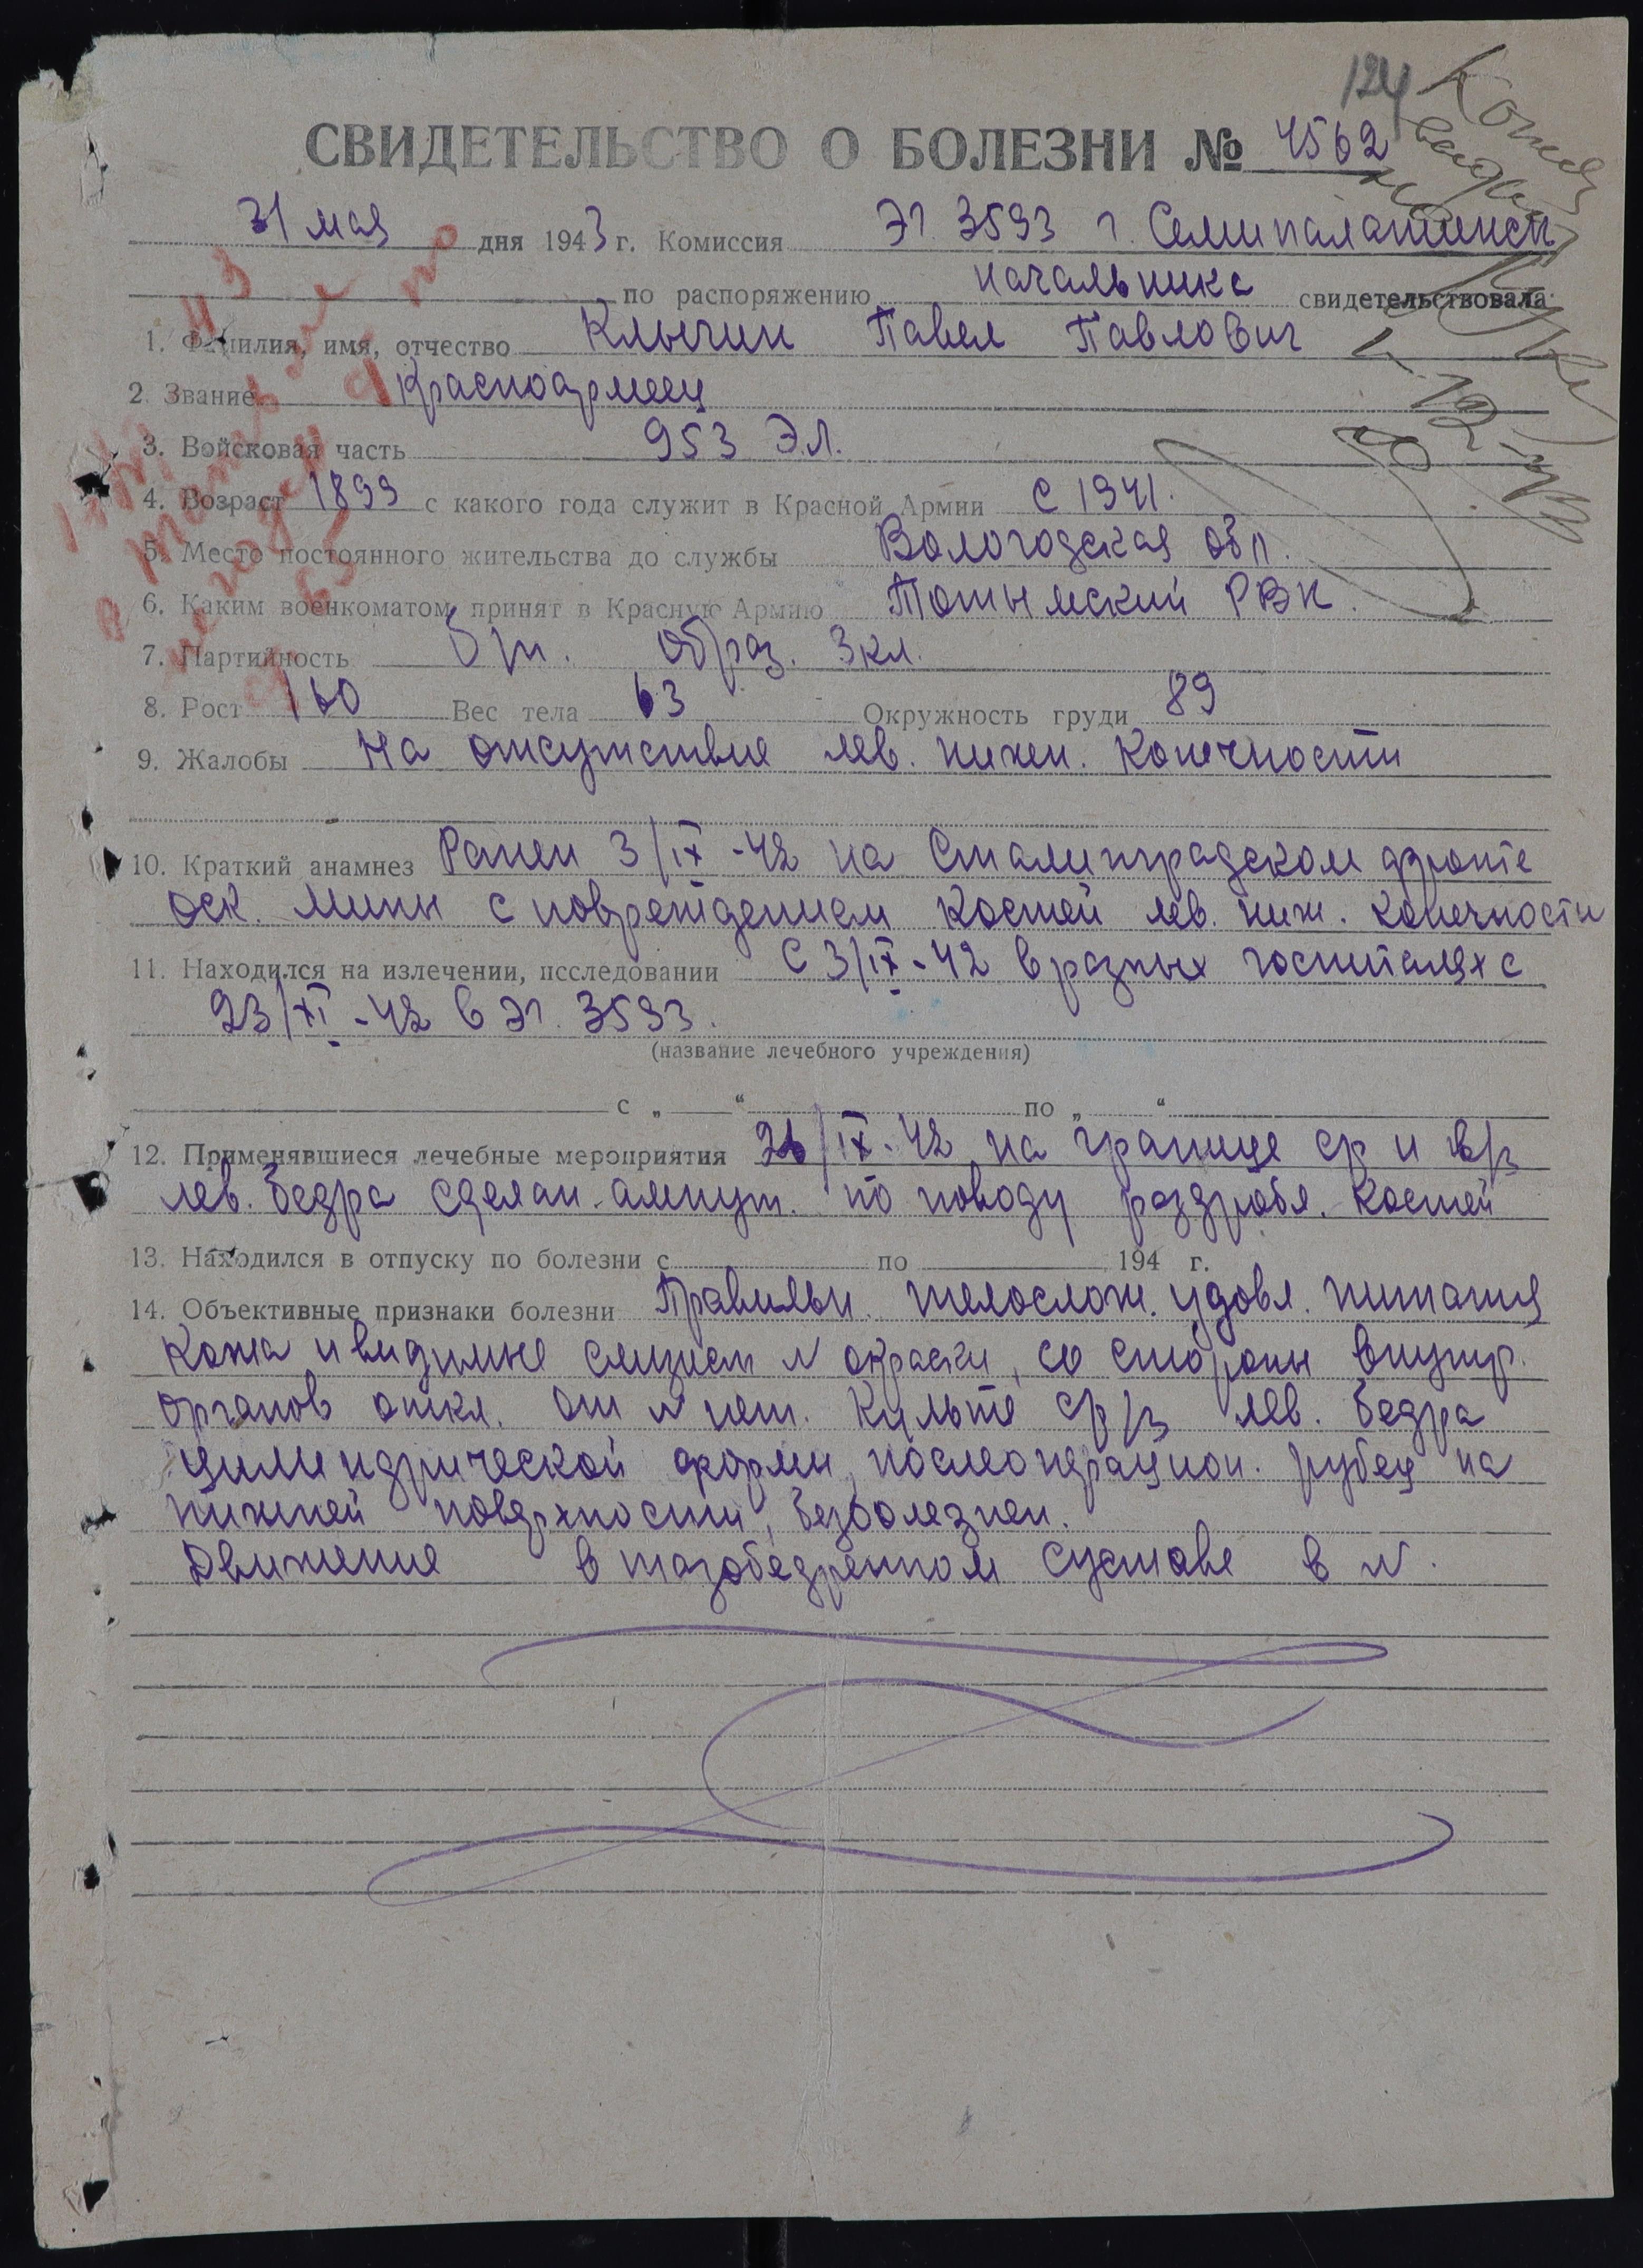 124
СВИДЕТЕЛЬСТВО О БОЛЕЗНИ № 4562
31 мая дня 1943 г. Комиссия ЭГ 3593 г. Семипалатинск
по распоряжению начальника свидетельствовала
1. Фамилия, имя, отчество Клычин Павел Павлович
2. Звание Красноармеец
3. Войсковая часть 953 Э.Л.
4. Возраст 1899 с какого года служит в Красной Армии С 1941.
5. Место постоянного жительства до службы Вологодская обл.
6. Каким военкоматом принят в Красную Армию Тотьмский РВК.
7. Партийность б/п. образ. 3 кл.
8. Рост 160 Вес тела 63 Окружность груди 89
9. Жалобы На отсутствие лев. нижн. конечности
10. Краткий анамнез Ранен 3/IX-42 на Сталинградском фронте
оск. мины с повреждением костей лев. ниж. конечности
11. Находился на излечении, исследовании С 3/IX-42 в разных госпиталях с
23/XI-42 в ЭГ. 3593.
(название лечебного учреждения)
с „ “ по „ “
12. Применявшиеся лечебные мероприятия 26/IX-42 на границе ср и в/з
лев. бедра сделан ампут. по поводу раздробл. костей
13. Находился в отпуску по болезни с по 194 г.
14. Объективные признаки болезни Правильн. телослож. удовл. питания
Кожа и видимые слизист N окраски, со стороны внутр.
органов откл. от N нет. Культе ср/з лев. бедра
цилиндрической формы, послеоперацион. рубец на
нижней поверхности, безболезнен.
Движение в тазобедренном суставе в N.